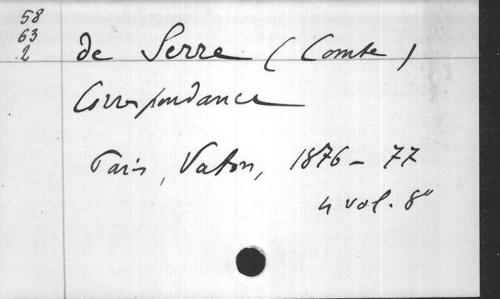 58
63
2
de Serre (Comte)
Correspondance
Paris, Vaton, 1876-77
4 vol. 8°